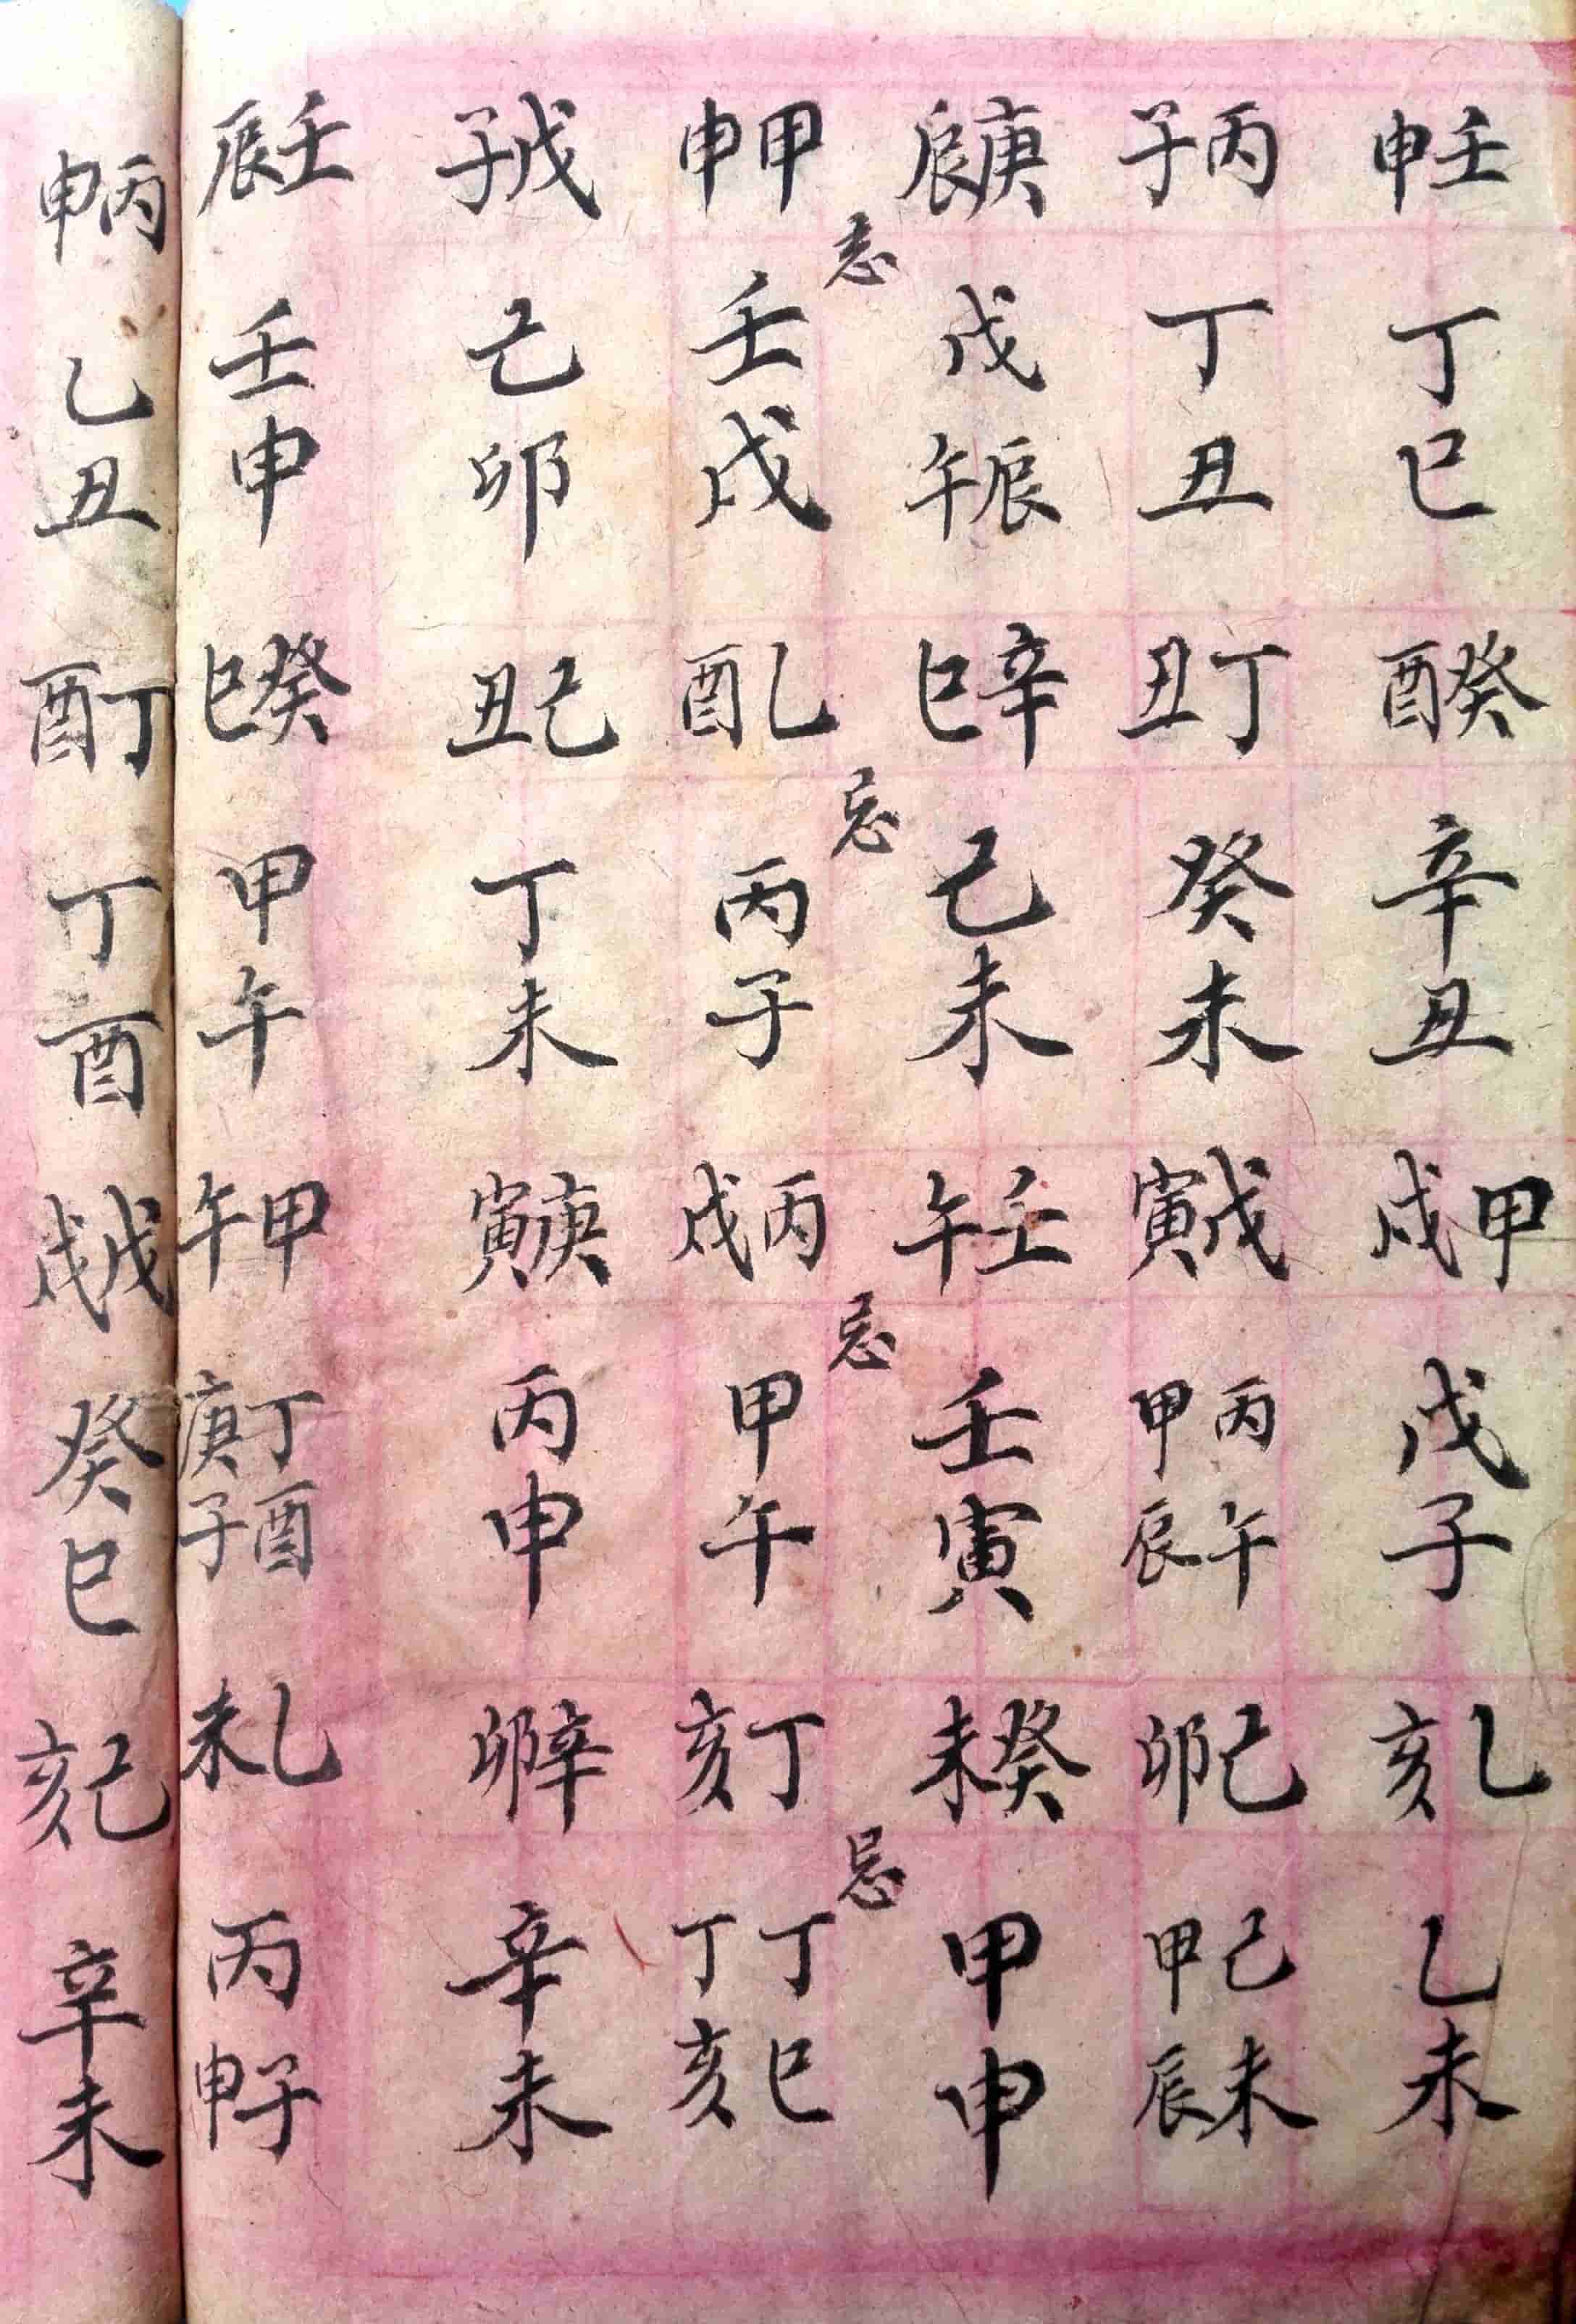 壬申 丁巳 癸酉 辛丑 甲戌 戊子 乙亥 乙未
丙子 丁丑 丁丑 癸未 戊寅 丙午 甲辰 己卯 己未 甲辰
庚辰 戊辰午 辛巳 己未 壬午 壬寅 癸未 甲申
忌 忌 忌 忌
甲申 壬戌 乙酉 丙子 丙戌 甲午 丁亥 丁巳 丁亥
戊子 己卯 己丑 丁未 庚寅 丙申 辛卯 辛未
壬辰 壬申 癸巳 甲午 甲午 丁酉 庚子 乙未 丙子申
丙申 乙丑 丁酉 丁酉 戊戌 癸巳 己亥 辛未